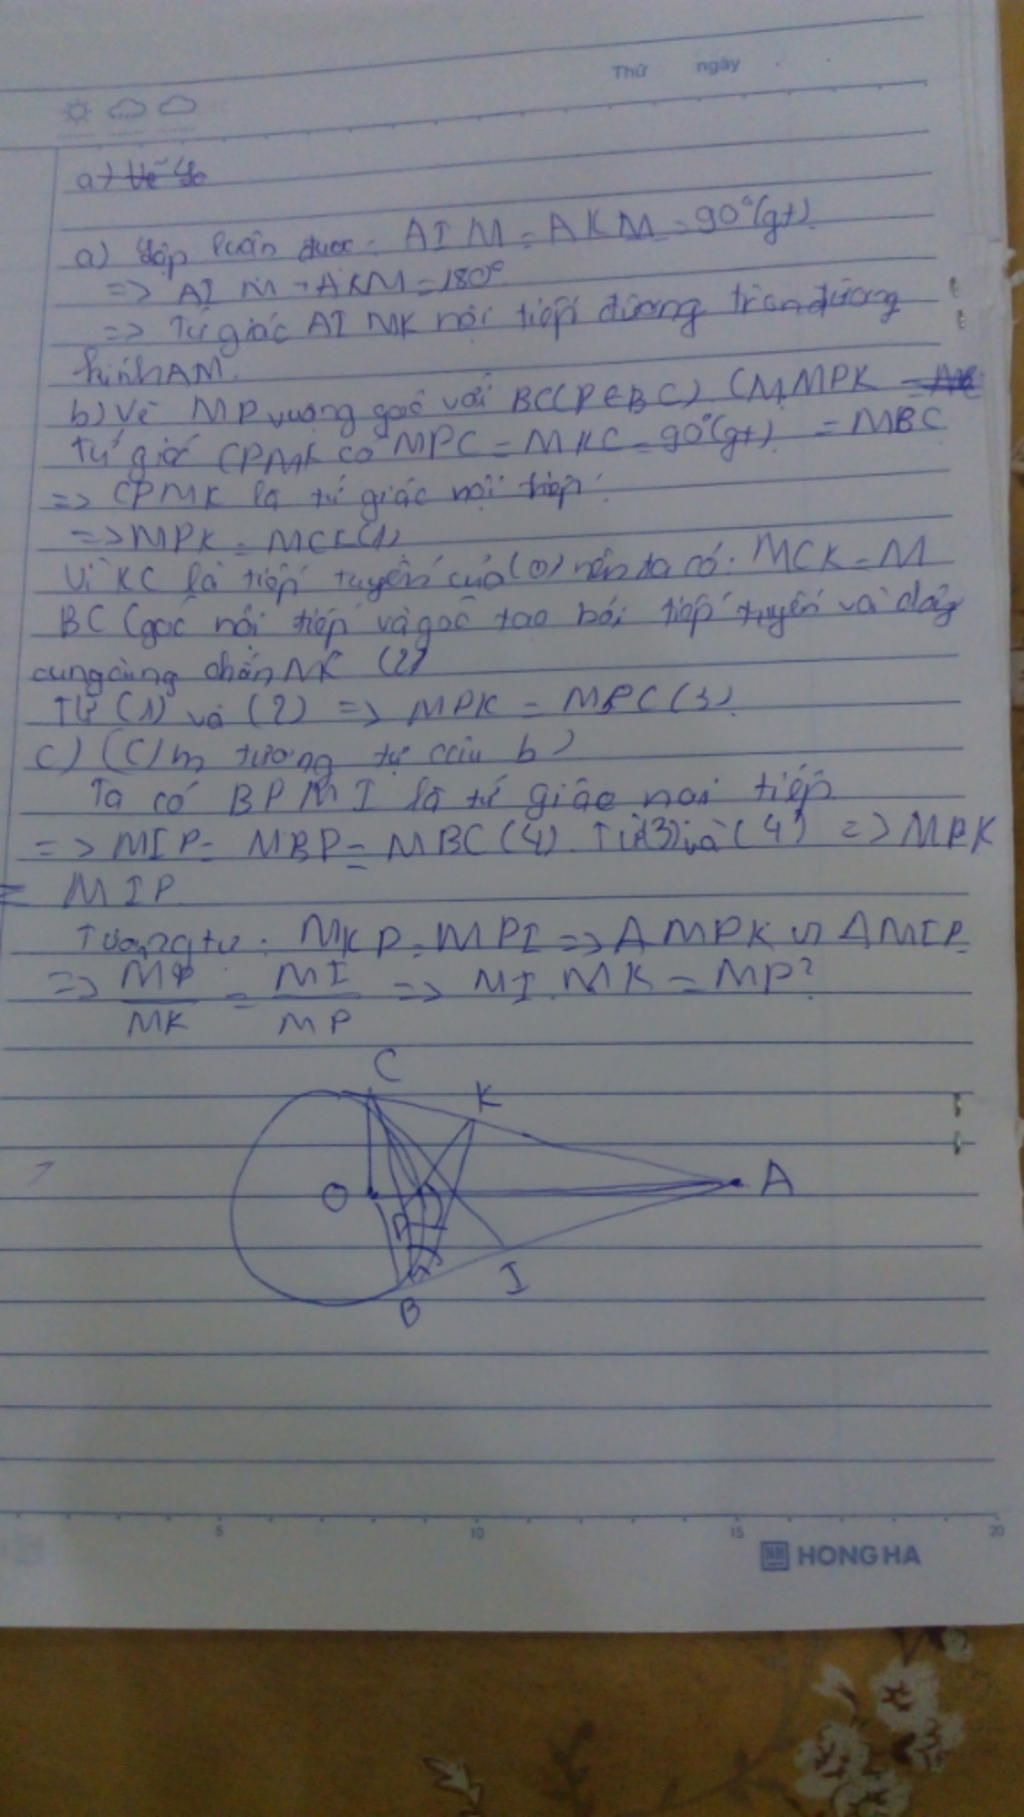 Thứ ngày
a) Vẽ
a) lập luận được: AIM = AKM = 90°(gt)
=> AIM + AKM = 180°
=> Tứ giác AIMK nội tiếp đường tròn đường
kính AM.
b) Vẽ MP vuông góc với BC (P∈BC). CM MPK
= MBC
Tứ giác CPMK có MPC = MKC = 90°(gt)
=> CPMK là tứ giác nội tiếp.
=> MPK = MCK (1)
Vì KC là tiếp tuyến của (O) nên ta có: MCK = M
BC (góc nội tiếp và góc tạo bởi tiếp tuyến và dây
cung cùng chắn MC (2)
Từ (1) và (2) => MPK = MBC (3)
c) (C/m tương tự câu b)
Ta có BPMI là tứ giác nội tiếp
=> MIP = MBP = MBC (4). Từ (3) và (4) => MPK
= MIP.
Tương tự: MKP = MPI => ΔMPK ∽ ΔMIP
=> MP/MK = MI/MP => MI.MK = MP²
C
K
O
A
P
I
B
5 10 15 20
HONG HA